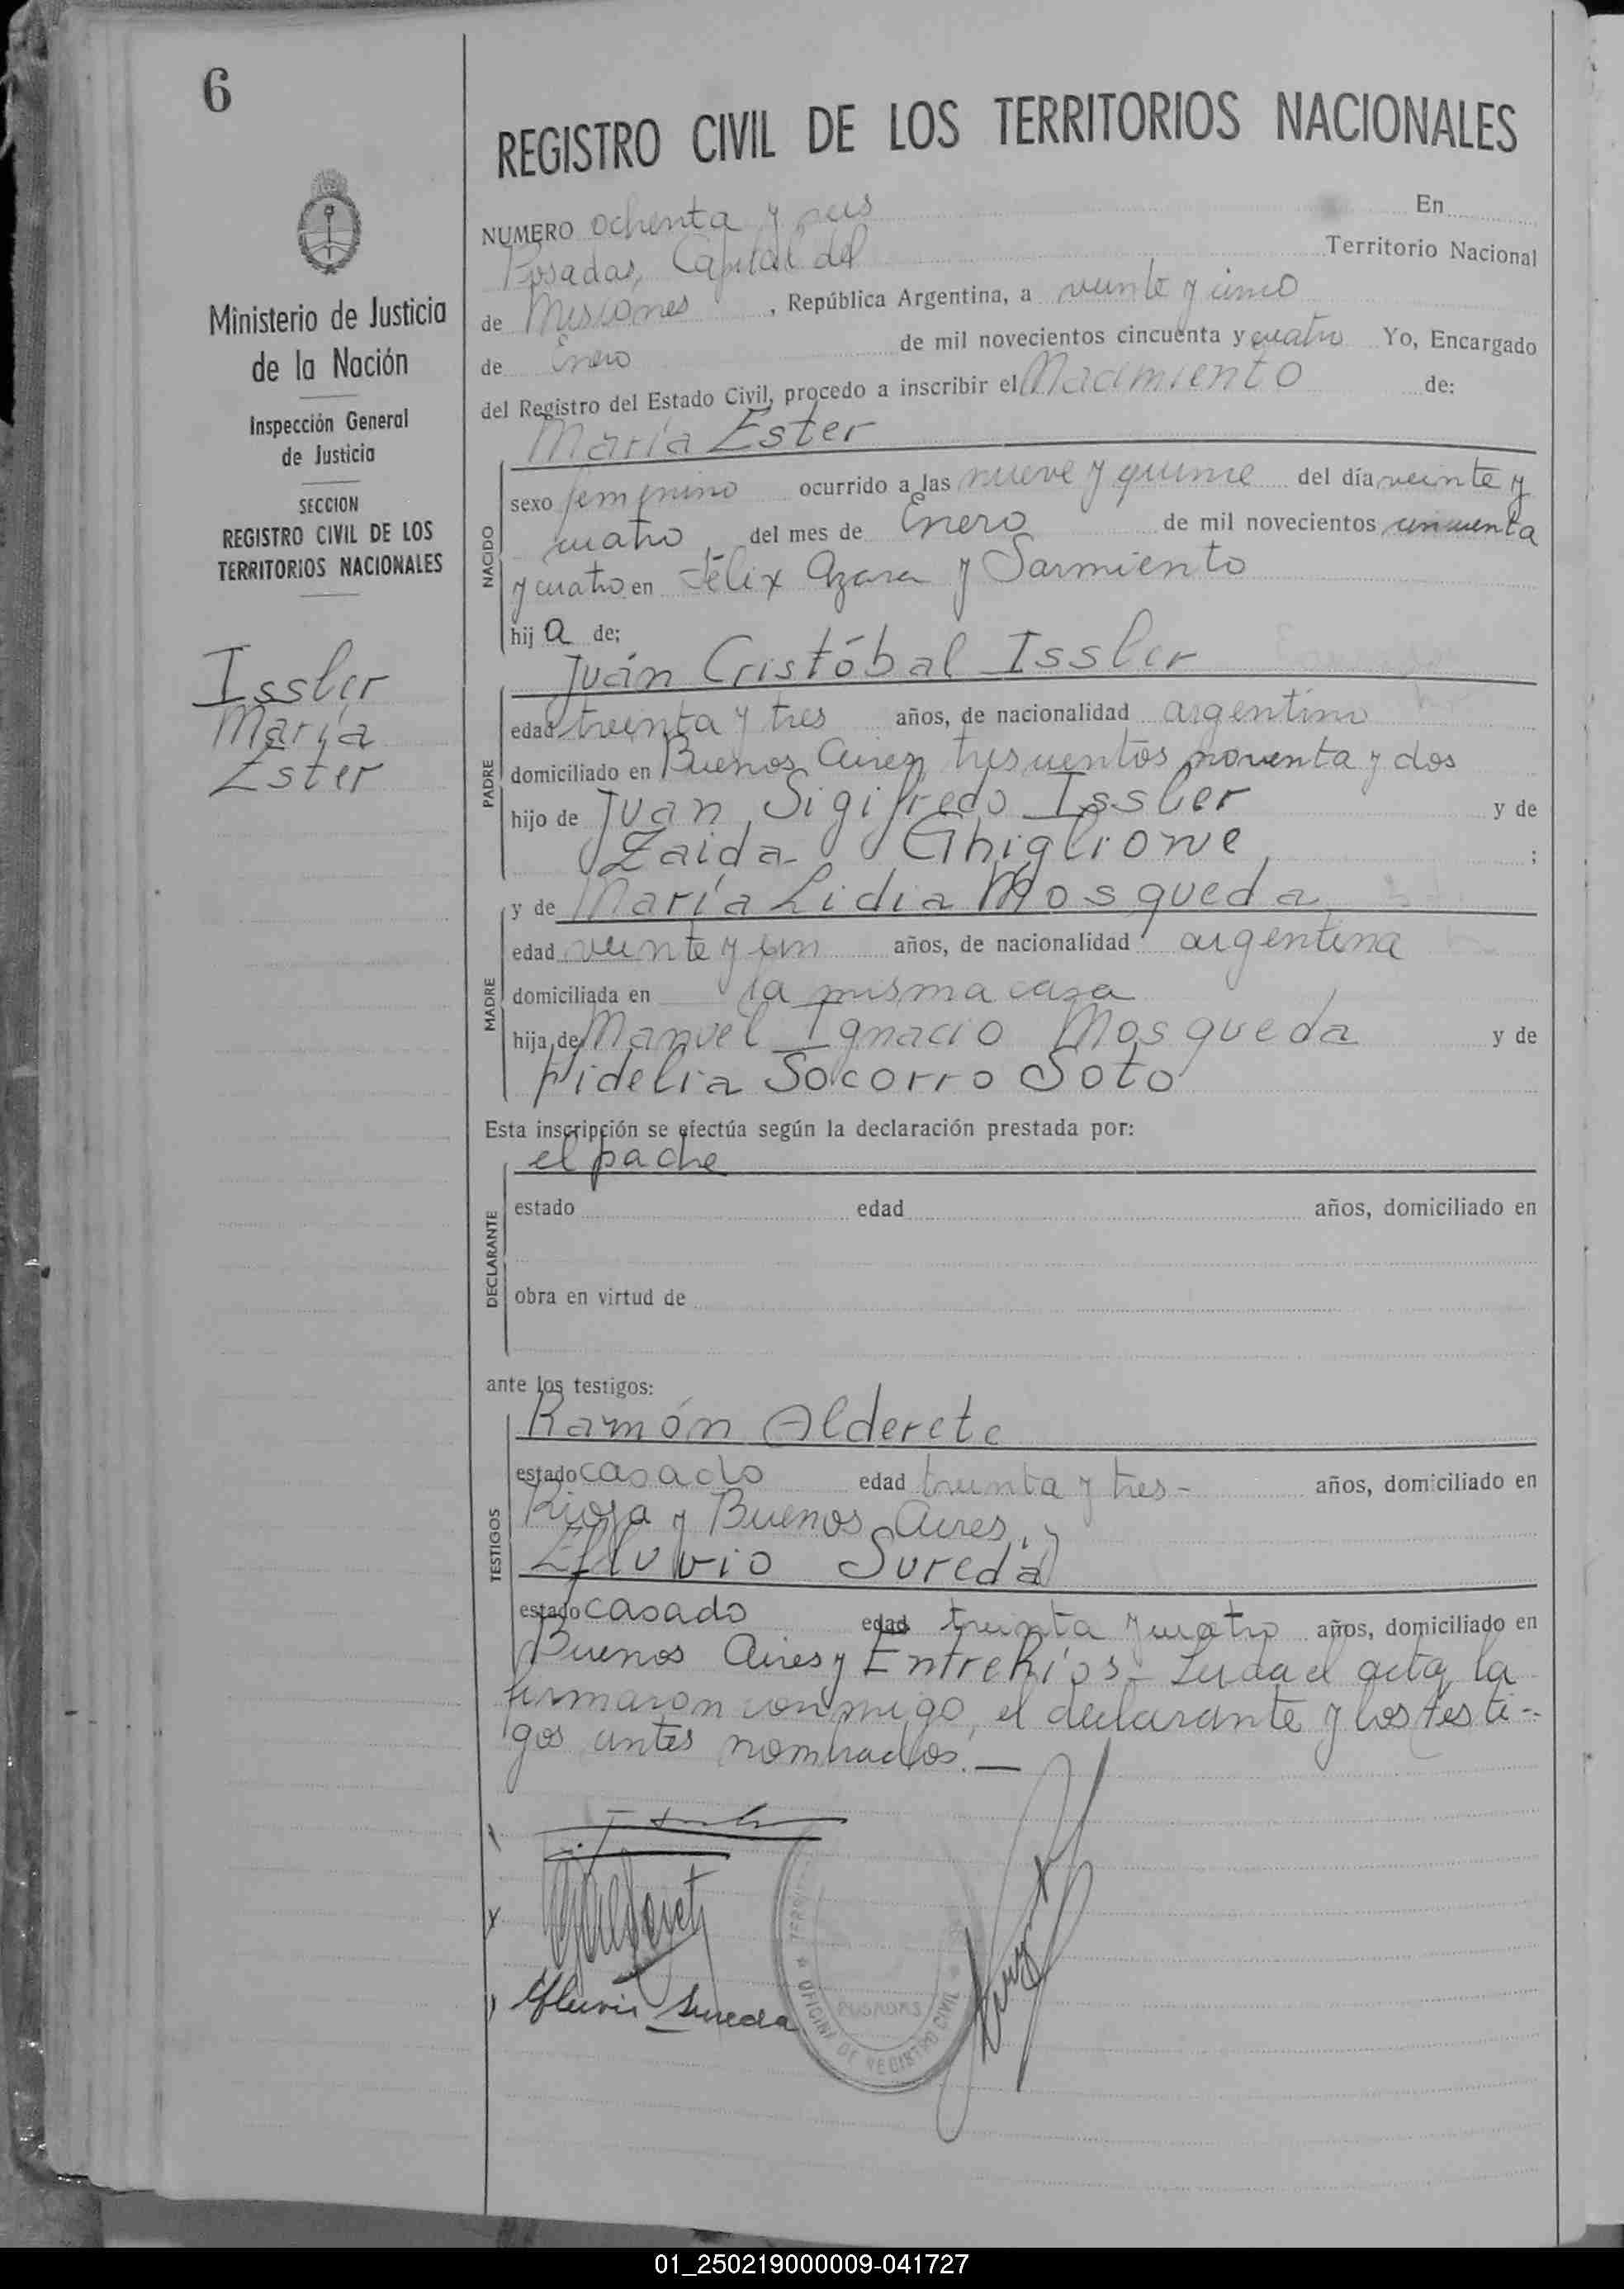 6
Ministerio de Justicia
de la Nación
Inspección General
de Justicia
SECCION
REGISTRO CIVIL DE LOS
TERRITORIOS NACIONALES
Issler
María
Ester
REGISTRO CIVIL DE LOS TERRITORIOS NACIONALES
NUMERO ochenta y seis En
Posadas, Capital del Territorio Nacional
de Misiones, República Argentina, a veinte y cinco
de Enero de mil novecientos cincuenta y cuatro Yo, Encargado
del Registro del Estado Civil, procedo a inscribir el Nacimiento de:
María Ester
NACIDO
sexo femenino ocurrido a las nueve y quince del día veinte y
cuatro, del mes de Enero de mil novecientos cincuenta
y cuatro en Félix Azara y Sarmiento
hija de;
Juan Cristóbal Issler
PADRE
edad treinta y tres años, de nacionalidad argentino
domiciliado en Buenos Aires trescientos noventa y dos
hijo de Juan Sigifredo Issler y de
Zaida Ghiglione ;
y de María Lidia Mosqueda
MADRE
edad veinte y un años, de nacionalidad argentina
domiciliada en la misma casa
hija de Manuel Ignacio Mosqueda y de
Fidelia Socorro Soto
Esta inscripción se efectúa según la declaración prestada por:
el padre
DECLARANTE
estado edad años, domiciliado en
obra en virtud de
ante los testigos:
Ramón Alderete
TESTIGOS
estado casado edad treinta y tres- años, domiciliado en
Rioja y Buenos Aires, y
Efluvio Sureda
estado casado edad treinta y cuatro años, domiciliado en
Buenos Aires y Entre Ríos- Leída el acta, la
firmaron conmigo, el declarante y los testi-
gos antes nombrados.—
Efluvio Sureda
POSADAS
OFICINA DE REGISTRO CIVIL
01_250219000009-041727